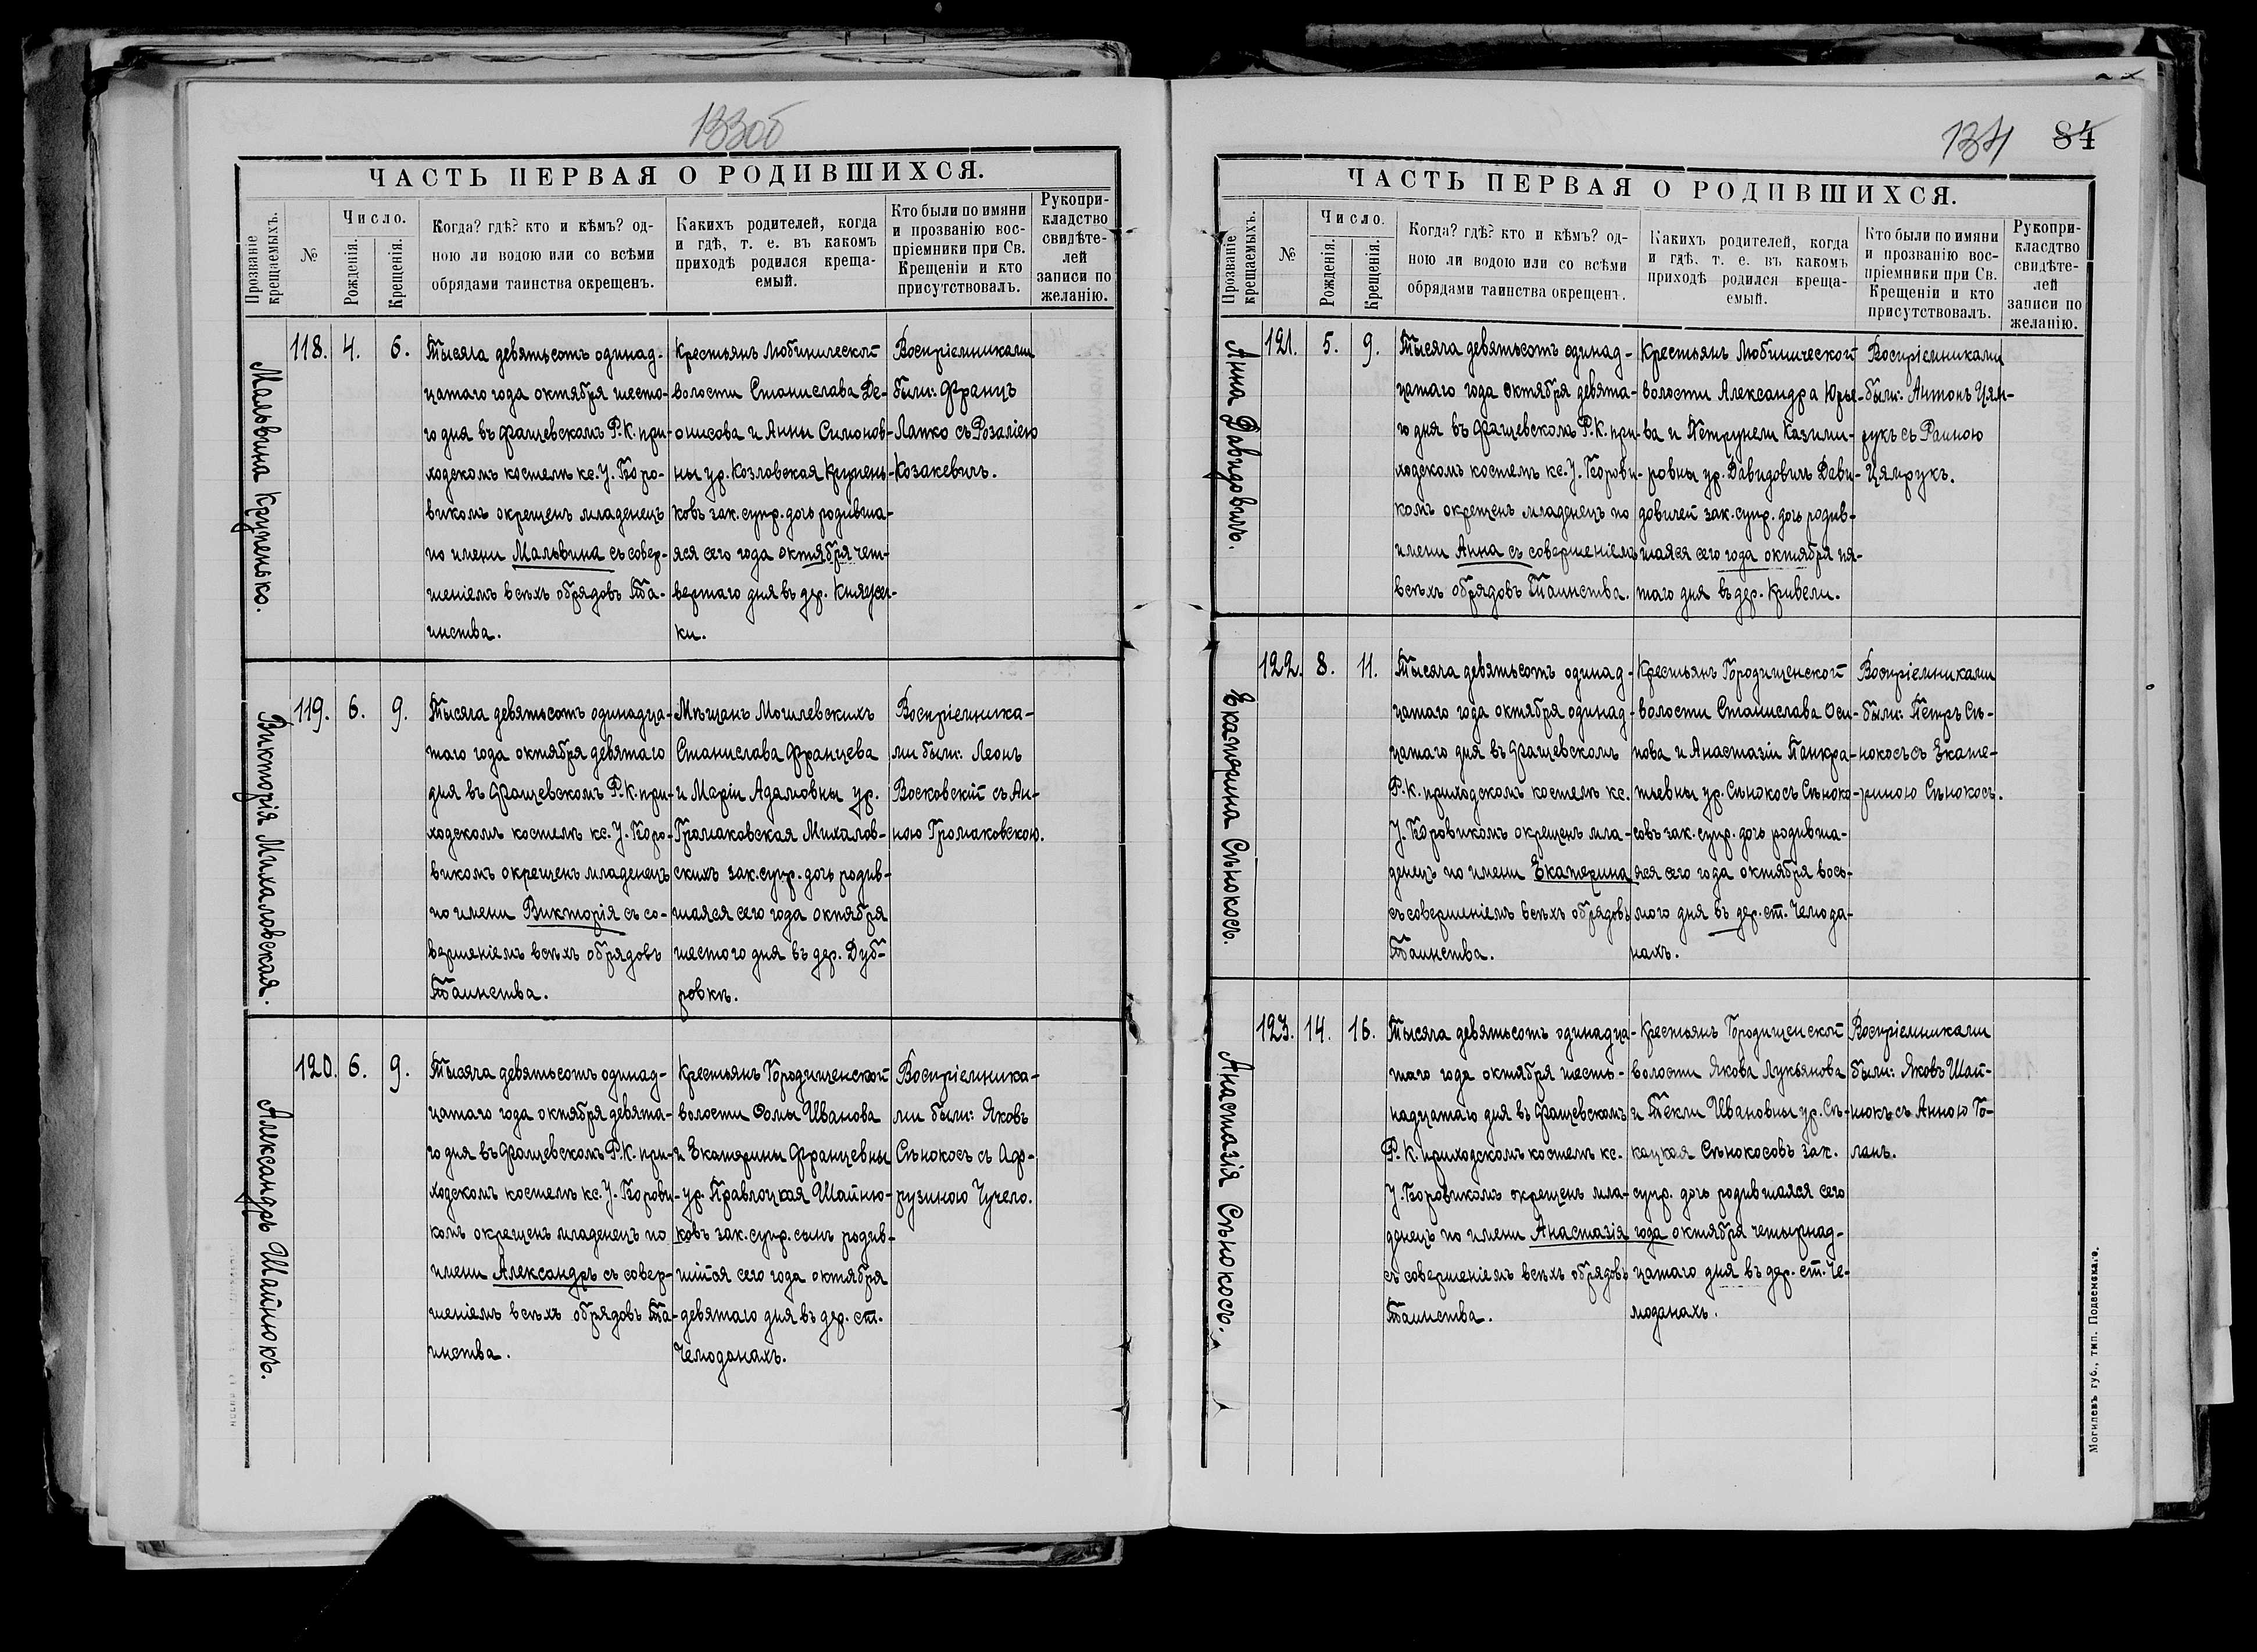 133об
ЧАСТЬ ПЕРВАЯ О РОДИВШИХСЯ.
Прозваніе крещаемыхъ.
№
Число.
Рожденія.
Крещенія.
Когда? гдѣ? кто и кѣмъ? од-
ною ли водою или со всѣми
обрядами таинства окрещенъ.
Какихъ родителей, когда
и гдѣ, т. е. въ какомъ
приходѣ родился креща-
емый.
Кто были по имяни
и прозванію вос-
пріемники при Св.
Крещеніи и кто
присутствовалъ.
Рукопри-
кладство
свидѣте-
лей
записи по
желанію.
Мальвина Крупенько.
118. 4. 6.
Тысяча девятьсотъ одинад-
цатаго года октября шесто-
го дня въ Фащевскомъ Р.К. при-
ходскомъ костелѣ кс. У. Боро-
викомъ окрещенъ младенецъ
по имени Мальвина съ совер-
шеніемъ всѣхъ обрядовъ Та-
инства.
Крестьянъ Любиничской
волости Станислава Де-
онисова и Анны Симонов-
ны ур. Козловская Крупень-
ковъ зак. супр. дочь родивша-
яся сего года октября чет-
вертаго дня въ дер. Княжи-
ки.
Воспріемниками
были: Францъ
Лапко съ Розаліею
Козакевичъ.
Викторія Михаловская.
119. 6. 9.
Тысяча девятьсотъ одинадца-
таго года октября девятаго
дня въ Фащевскомъ Р.К. при-
ходскомъ костелѣ кс. У. Боро-
викомъ окрещенъ младенецъ
по имени Викторія съ со-
вершеніемъ всѣхъ обрядовъ
Таинства.
Мѣщанъ Могилевскихъ
Станислава Францева
и Маріи Адамовны ур.
Громаковская Михалов-
скихъ зак. супр. дочь родив-
шаяся сего года октября
шестого дня въ дер. Дуб-
ровкѣ.
Воспріемника-
ми были: Леонъ
Восковскій съ Ан-
ною Громаковскою.
Александръ Шайнюкъ.
120. 6. 9.
Тысяча девятьсотъ одинад-
цатаго года октября девята-
го дня въ Фащевскомъ Р.К. при-
ходскомъ костелѣ кс. У. Борови-
комъ окрещенъ младенецъ по
имени Александръ съ совер-
шеніемъ всѣхъ обрядовъ Та-
инства.
Крестьянъ Городищенской
волости Ѳомы Иванова
и Екатерины Францевны
ур. Правлоцкая Шайню-
ковъ зак. супр. сынъ родив-
шійся сего года октября
девятаго дня въ дер. ст.
Чемоданахъ.
Воспріемника-
ми были: Яковъ
Сѣнокосъ съ Аф-
рузиною Чучело.
134 84
ЧАСТЬ ПЕРВАЯ О РОДИВШИХСЯ.
Прозваніе крещаемыхъ.
№
Число.
Рожденія.
Крещенія.
Когда? гдѣ? кто и кѣмъ? од-
ною ли водою или со всѣми
обрядами таинства окрещенъ.
Какихъ родителей, когда
и гдѣ, т. е. въ какомъ
приходѣ родился креща-
емый.
Кто были по имяни
и прозванію вос-
пріемники при Св.
Крещеніи и кто
присутствовалъ.
Рукопри-
класдтво
свидѣте-
лей
записи по
желанію.
Анна Давидовичъ.
121. 5. 9.
Тысяча девятьсотъ одинад-
цатаго года октября девята-
го дня въ Фащевскомъ Р.К. при-
ходскомъ костелѣ кс. У. Борови-
комъ окрещенъ младенецъ по
имени Анна съ совершеніемъ
всѣхъ обрядовъ Таинства.
Крестьянъ Любиничской
волости Александра Юрье-
ва и Петрунели Казими-
ровны ур. Давидовичъ Дави-
довичей зак. супр. дочь родив-
шаяся сего года октября пя-
таго дня въ дер. Кривели.
Воспріемниками
были: Антонъ Цям-
рукъ съ Раиною
Цямрукъ.
Екатерина Сѣнокосъ.
122. 8. 11.
Тысяча девятьсотъ одинад-
цатаго года октября одинад-
цатаго дня въ Фащевскомъ
Р.К. приходскомъ костелѣ кс.
У. Боровикомъ окрещенъ мла-
денецъ по имени Екатерина
съ совершеніемъ всѣхъ обрядовъ
Таинства.
Крестьянъ Городищенской
волости Станислава Оси-
пова и Анастазіи Панкра-
тьевны ур. Сѣнокосъ Сѣноко-
совъ зак. супр. дочь родивша-
яся сего года октября вось-
мого дня въ дер. ст. Чемода-
нахъ.
Воспріемниками
были: Петръ Сѣ-
нокосъ съ Екате-
риною Сѣнокосъ.
Анастазія Сѣнокосъ.
123. 14. 16.
Тысяча девятьсотъ одинадца-
таго года октября шест-
надцатаго дня въ Фащевскомъ
Р.К. приходскомъ костелѣ кс.
У. Боровикомъ окрещенъ мла-
денецъ по имени Анастазія
съ совершеніемъ всѣхъ обрядовъ
Таинства.
Крестьянъ Городищенской
волости Якова Лукьянова
и Текли Ивановны ур. Сѣ-
кацкая Сѣнокосовъ зак.
супр. дочь родившаяся сего
года октября четырнад-
цатаго дня въ дер. ст. Че-
моданахъ.
Воспріемниками
были: Яковъ Шай-
нюкъ съ Анною Го-
ланъ.
Могилевъ губ., тип. Подземскаго.